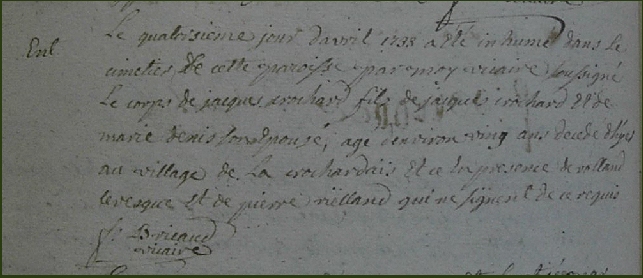 Enl.
Le quatorsieme jour d'avril 1738 a été inhumé dans le
cimetier de cette paroisse par moy vicaire soussigné
Le corps de jacques crochard fils de jacque crochard Et de
marie denis son Epouse, agé denviron ving ans decedé d'hyer
au village de La crochardais Et ce En presence de rolland
levesque Et de pierre rielland qui ne signent de ce requis
Bricaud
vicaire